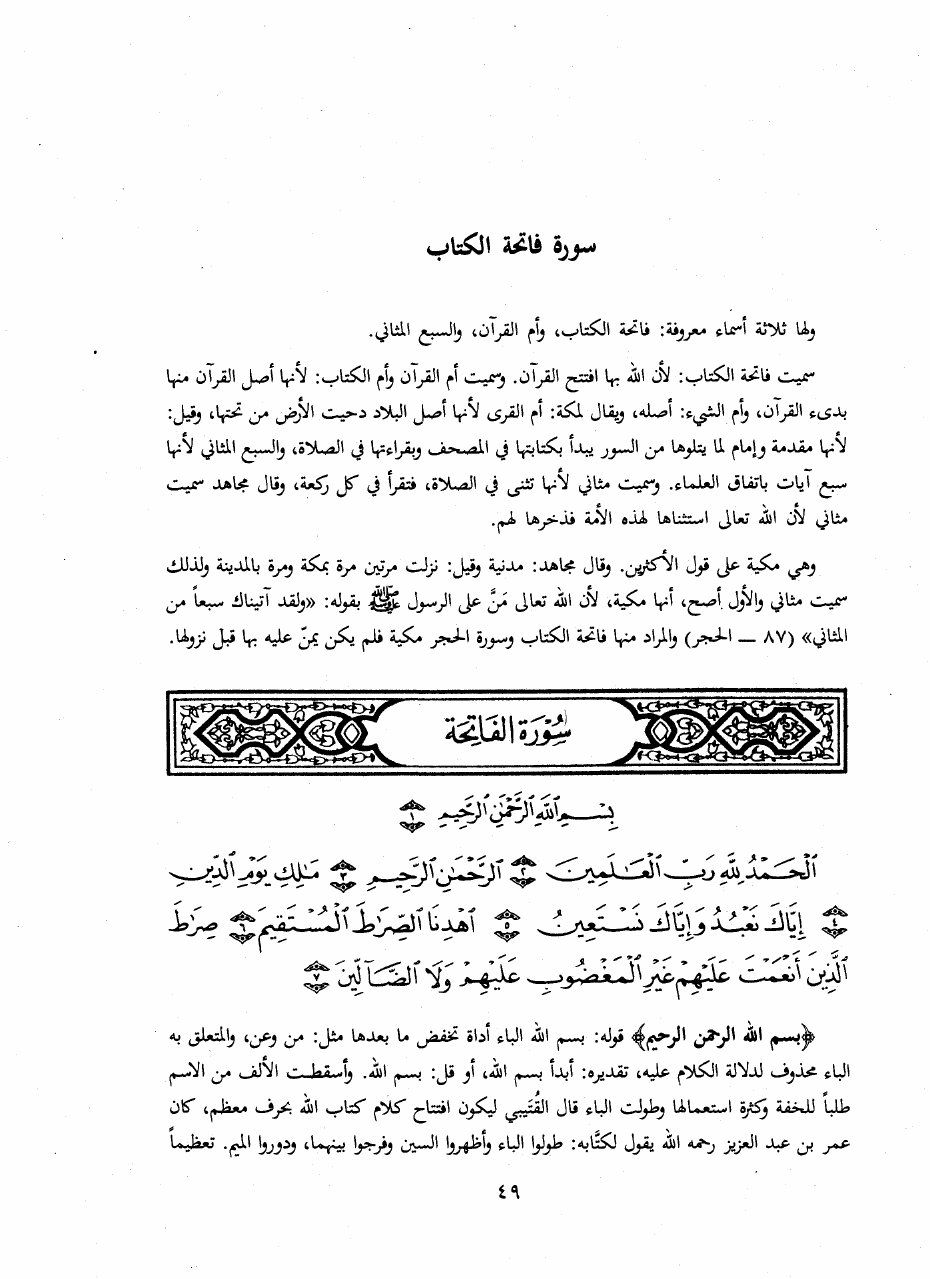 سورة فاتحة الكتاب
ولها ثلاثة أسماء معروفة: فاتحة الكتاب، وأم القرآن، والسبع المثاني.
سميت فاتحة الكتاب: لأن الله بها افتتح القرآن. وسميت أم القرآن وأم الكتاب: لأنها أصل القرآن منها
بدىء القرآن، وأم الشيء: أصله، ويقال لمكة: أم القرى لأنها أصل البلاد دحيت الأرض من تحتها، وقيل:
لأنها مقدمة وإمام لما يتلوها من السور يبدأ بكتابتها في المصحف وبقراءتها في الصلاة، والسبع المثاني لأنها
سبع آيات باتفاق العلماء. وسميت مثاني لأنها تثنى في الصلاة، فتقرأ في كل ركعة، وقال مجاهد سميت
مثاني لأن الله تعالى استثناها لهذه الأمة فذخرها لهم.
وهي مكية على قول الأكثرين. وقال مجاهد: مدنية وقيل: نزلت مرتين مرة بمكة ومرة بالمدينة ولذلك
سميت مثاني والأول أصح، أنها مكية، لأن الله تعالى مَنَّ على الرسول ﷺ بقوله: «ولقد آتيناك سبعاً من
المثاني» (٨٧ — الحجر) والمراد منها فاتحة الكتاب وسورة الحجر مكية فلم يكن يمنّ عليه بها قبل نزولها.
سُورَةُ الفَاتِحَة
بِسْمِ ٱللَّهِ ٱلرَّحْمَٰنِ ٱلرَّحِيمِ ١
ٱلْحَمْدُ لِلَّهِ رَبِّ ٱلْعَٰلَمِينَ ٢ ٱلرَّحْمَٰنِ ٱلرَّحِيمِ ٣ مَٰلِكِ يَوْمِ ٱلدِّينِ
٤ إِيَّاكَ نَعْبُدُ وَإِيَّاكَ نَسْتَعِينُ ٥ ٱهْدِنَا ٱلصِّرَٰطَ ٱلْمُسْتَقِيمَ ٦ صِرَٰطَ
ٱلَّذِينَ أَنْعَمْتَ عَلَيْهِمْ غَيْرِ ٱلْمَغْضُوبِ عَلَيْهِمْ وَلَا ٱلضَّآلِّينَ ٧
﴿بسم الله الرحمن الرحيم﴾ قوله: بسم الله الباء أداة تخفض ما بعدها مثل: من وعن، والمتعلق به
الباء محذوف لدلالة الكلام عليه، تقديره: أبدأ بسم الله، أو قل: بسم الله. وأسقطت الألف من الاسم
طلباً للخفة وكثرة استعمالها وطولت الباء قال القُتَيبي ليكون افتتاح كلام كتاب الله بحرف معظم، كان
عمر بن عبد العزيز رحمه الله يقول لكتَّابه: طولوا الباء وأظهروا السين وفرجوا بينهما، ودوروا الميم. تعظيماً
٤٩